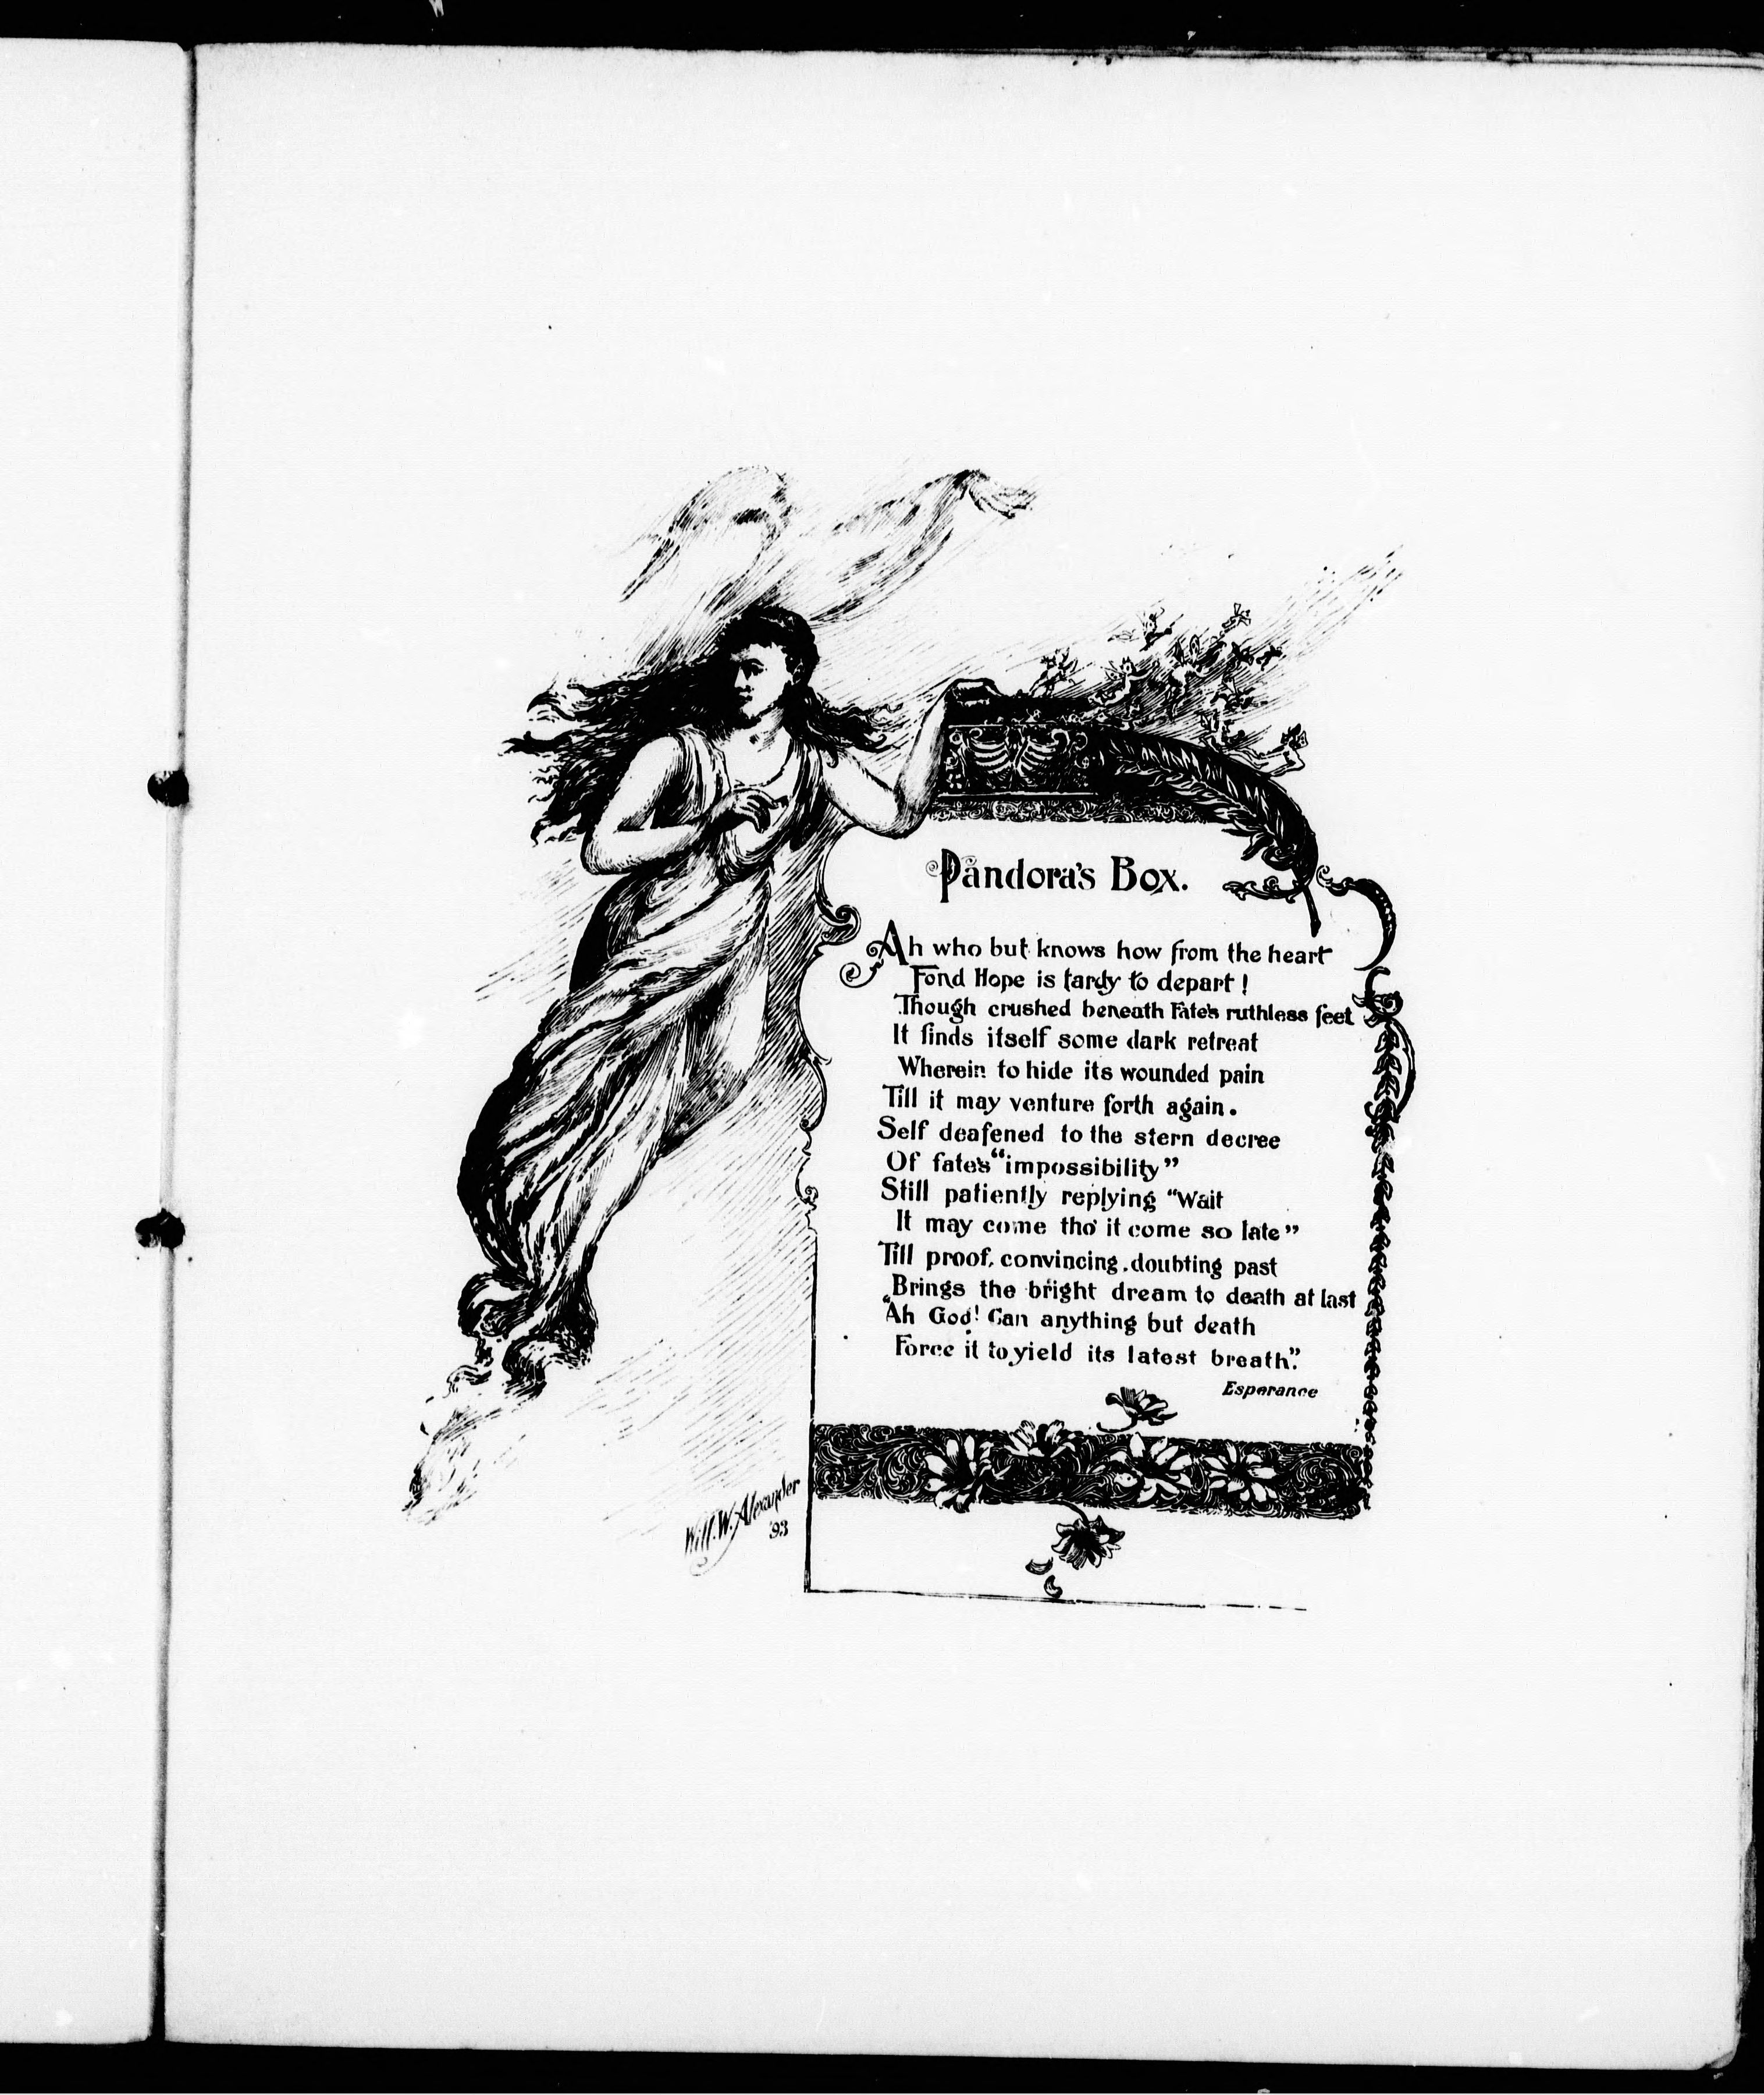 Pandora's Box.
Ah who but knows how from the heart
Fond Hope is tardy to depart!
Though crushed beneath Fate's ruthless feet
It finds itself some dark retreat
Wherein to hide its wounded pain
Till it may venture forth again.
Self deafened to the stern decree
Of fate's "impossibility"
Still patiently replying "Wait
It may come tho' it come so late"
Till proof, convincing, doubting past
Brings the bright dream to death at last
"Ah God! Can anything but death
Force it to yield its latest breath".
Esperance
Will. W. Alexander
'93